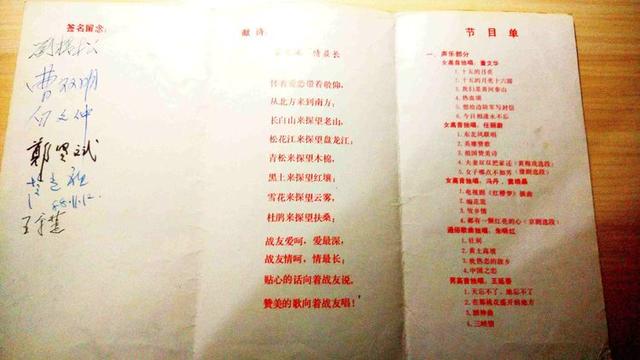 签名留念:
曹双明
88.11.12.
献诗:
情最长
怀着爱恋带着敬仰,
从北方来到南方;
长白山来探望老山,
松花江来探望盘龙江;
青松来探望木棉,
黑土来探望红壤;
雪花来探望云雾,
杜鹃来探望扶桑;
战友爱呵,爱最深,
战友情呵,情最长;
贴心的话向着战友说,
赞美的歌向着战友唱!
节目单
一、声乐部分
女高音独唱,董文华
1.十五的月亮
2.十五的月亮十六圆
3.我们是黄河泰山
4.热血颂
5.想给边防军写封信
6.今日相逢永不忘
女高音独唱,任丽蔚
1.东北风联唱
2.英雄赞歌
3.祖国赞美诗
4.夫妻双双把家还(黄梅戏选段)
5.女子哪点不如男(豫剧选段)
1.电视剧《红楼梦》插曲
2.编花篮
3.牧乡情
4.都有一颗红亮的心(京剧选段)
通俗歌曲独唱,朱晓红
1.壮别
2.黄土高坡
3.我热恋的故乡
4.中国之恋
男高音独唱,王延番
1.天忘不了,地忘不了
2.在那桃花盛开的地方
4.三峡情